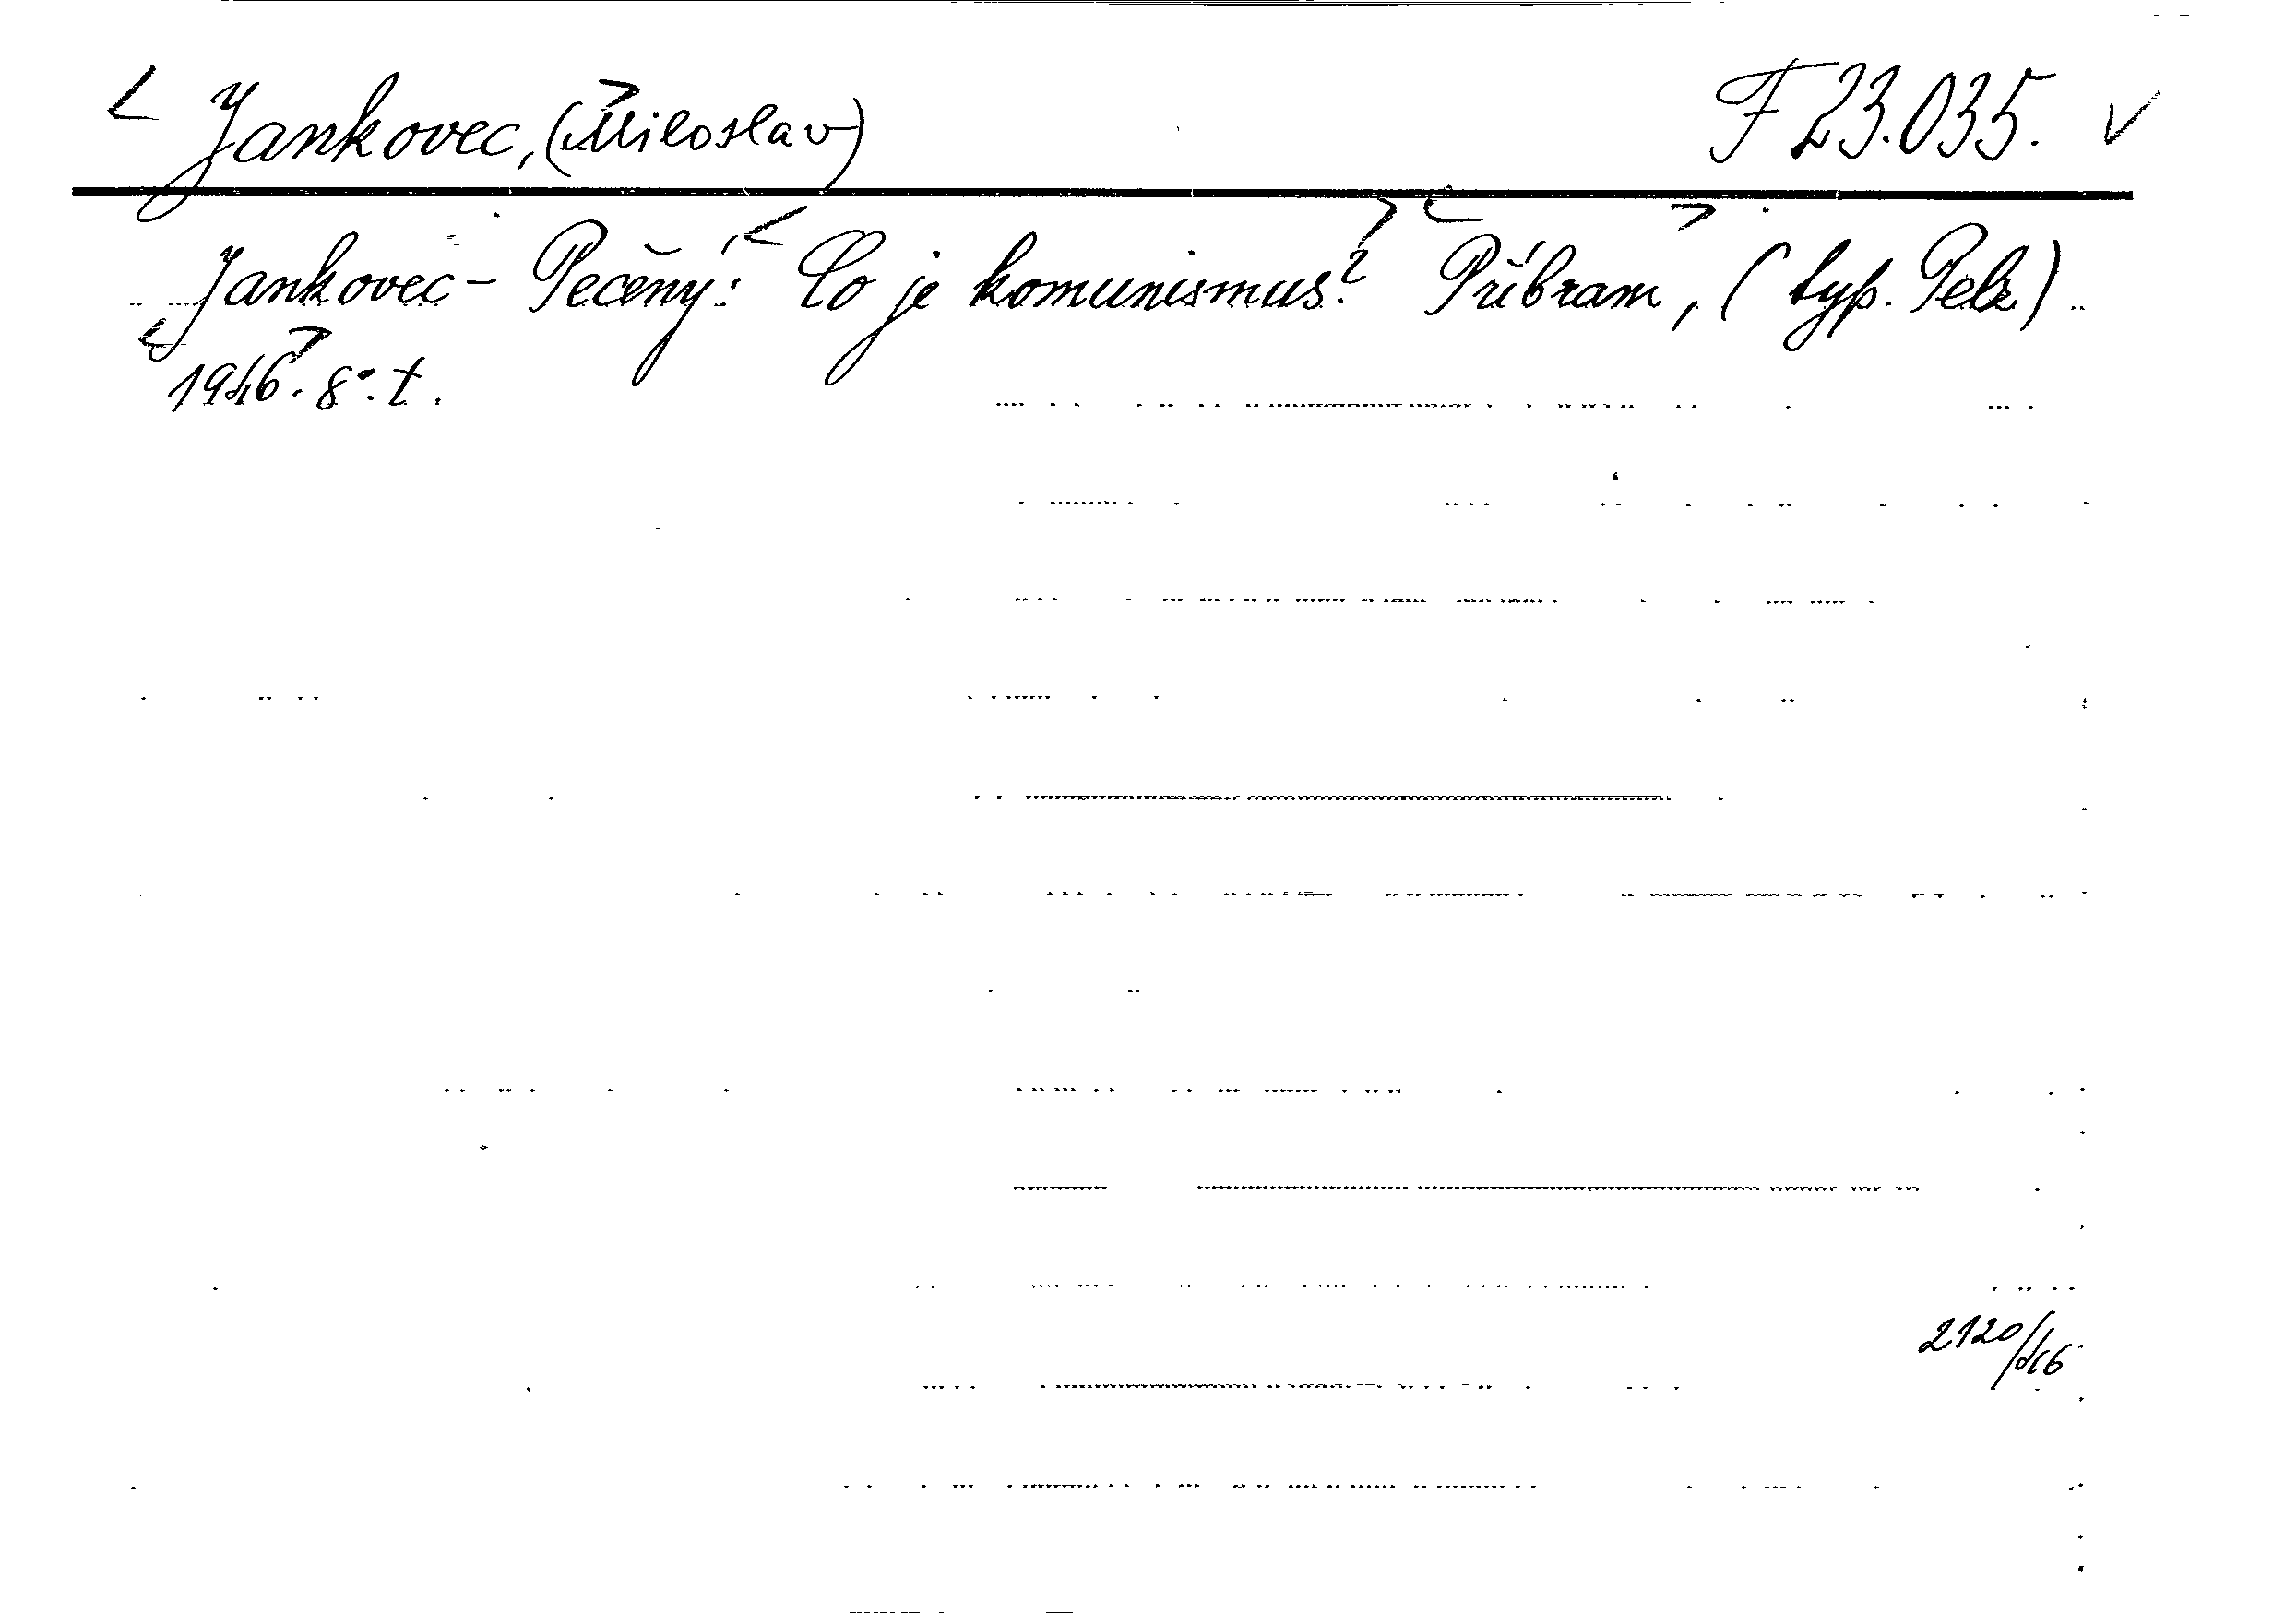 Jankovec, (Miloslav) F 23.035. v
Jankovec - Pečený: Co je komunismus? Příbram, (typ. Pelz).
1946. 8°. t.
2120/46